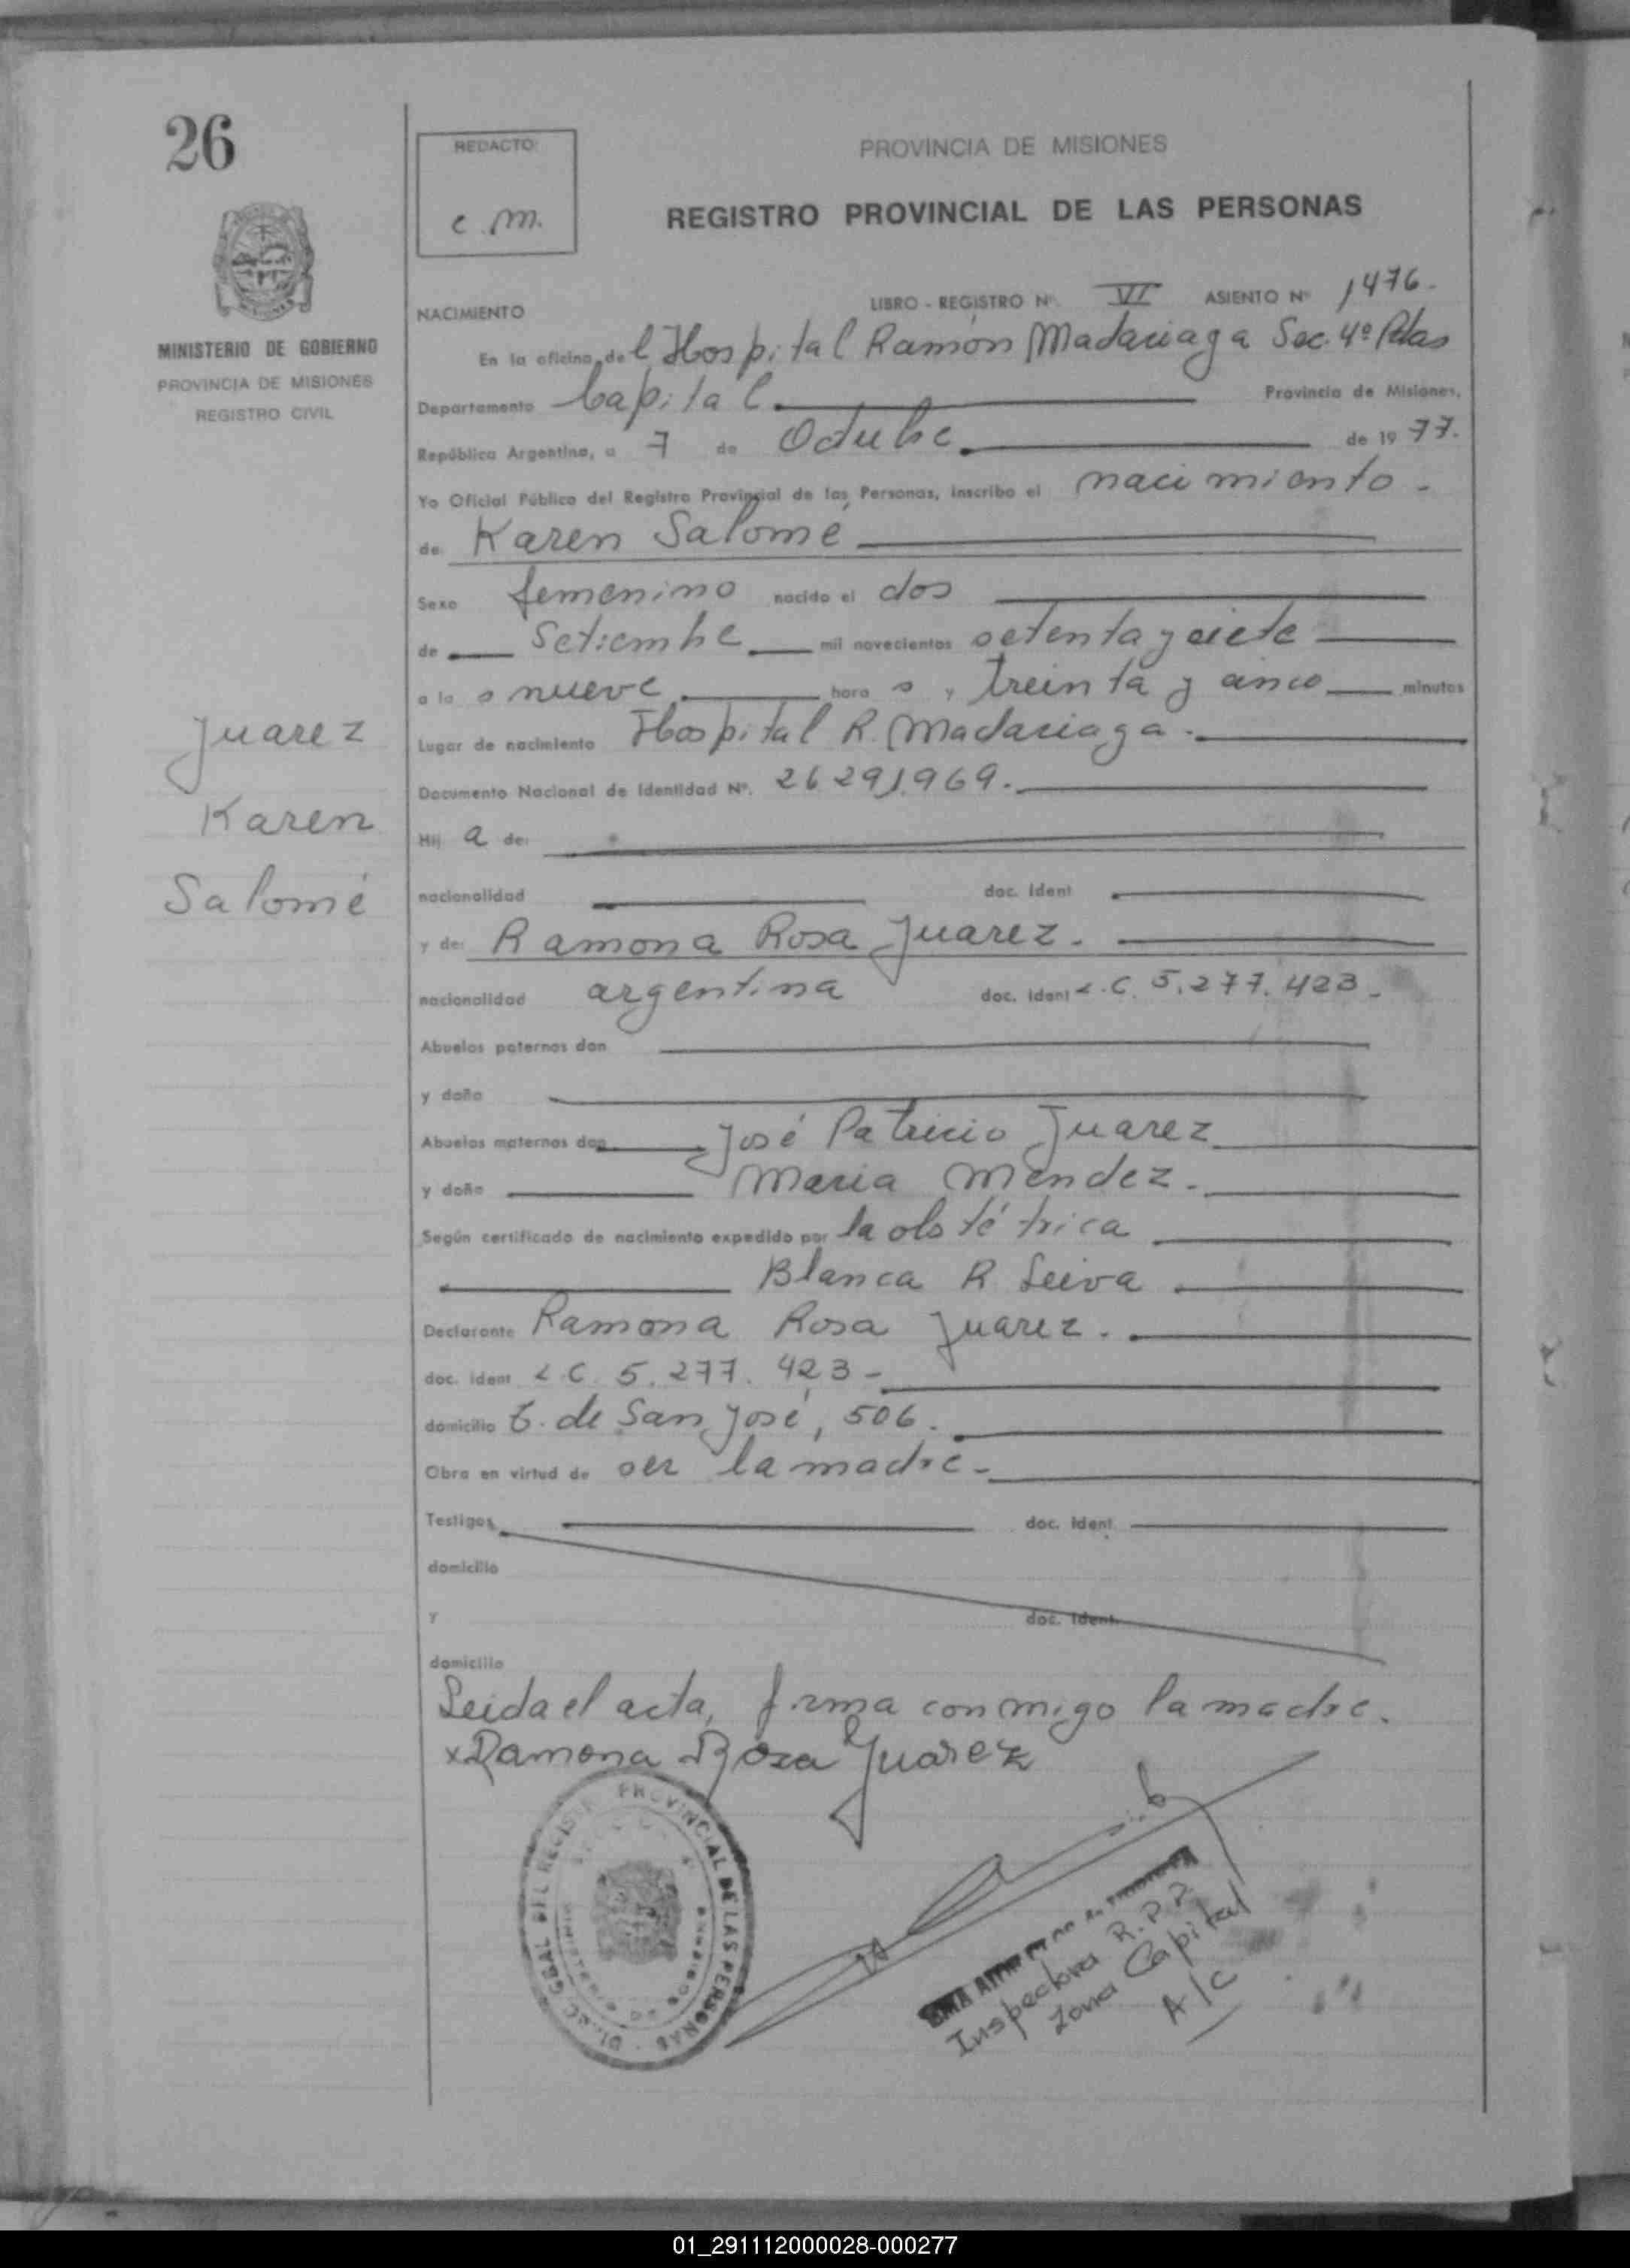 26
REDACTO:
c.m.
PROVINCIA DE MISIONES
REGISTRO PROVINCIAL DE LAS PERSONAS
MINISTERIO DE GOBIERNO
PROVINCIA DE MISIONES
REGISTRO CIVIL
NACIMIENTO
LIBRO - REGISTRO Nº. VI ASIENTO Nº 1476.
En la oficina del Hospital Ramón Madariaga Sec. 4º Pdas
Departamento Capital. Provincia de Misiones,
República Argentina, a 7 de Octubre. de 1977.
Yo Oficial Público del Registro Provincial de las Personas, inscribo el nacimiento.
de Karen Salomé
Sexo femenino nacido el dos
de Setiembre mil novecientos setenta y siete
a las nueve horas y treinta y cinco minutos
Lugar de nacimiento Hospital R. Madariaga.
Documento Nacional de Identidad Nº. 26.291.969.
Hija de:
nacionalidad doc. ident
y de: Ramona Rosa Juarez.
nacionalidad argentina doc. ident L.C. 5.277.423-
Abuelos paternos don
y doña
Abuelos maternos don José Patricio Juarez
y doña Maria Mendez.
Según certificado de nacimiento expedido por la obstétrica
Blanca R. Leiva
Declarante Ramona Rosa Juarez.
doc. ident L.C. 5.277.423-
domicilio C. de San José, 506.
Obra en virtud de ser la madre-
Testigos doc. ident.
domicilio
y doc. ident.
domicilio
Leida el acta, firma conmigo la madre.
x Ramona Rosa Juarez
Juarez
Karen
Salomé
DIREC. GRAL. DEL REGISTRO PROVINCIAL DE LAS PERSONAS
Inspectora R.P.P.
Zona Capital
A/C
01_291112000028-000277